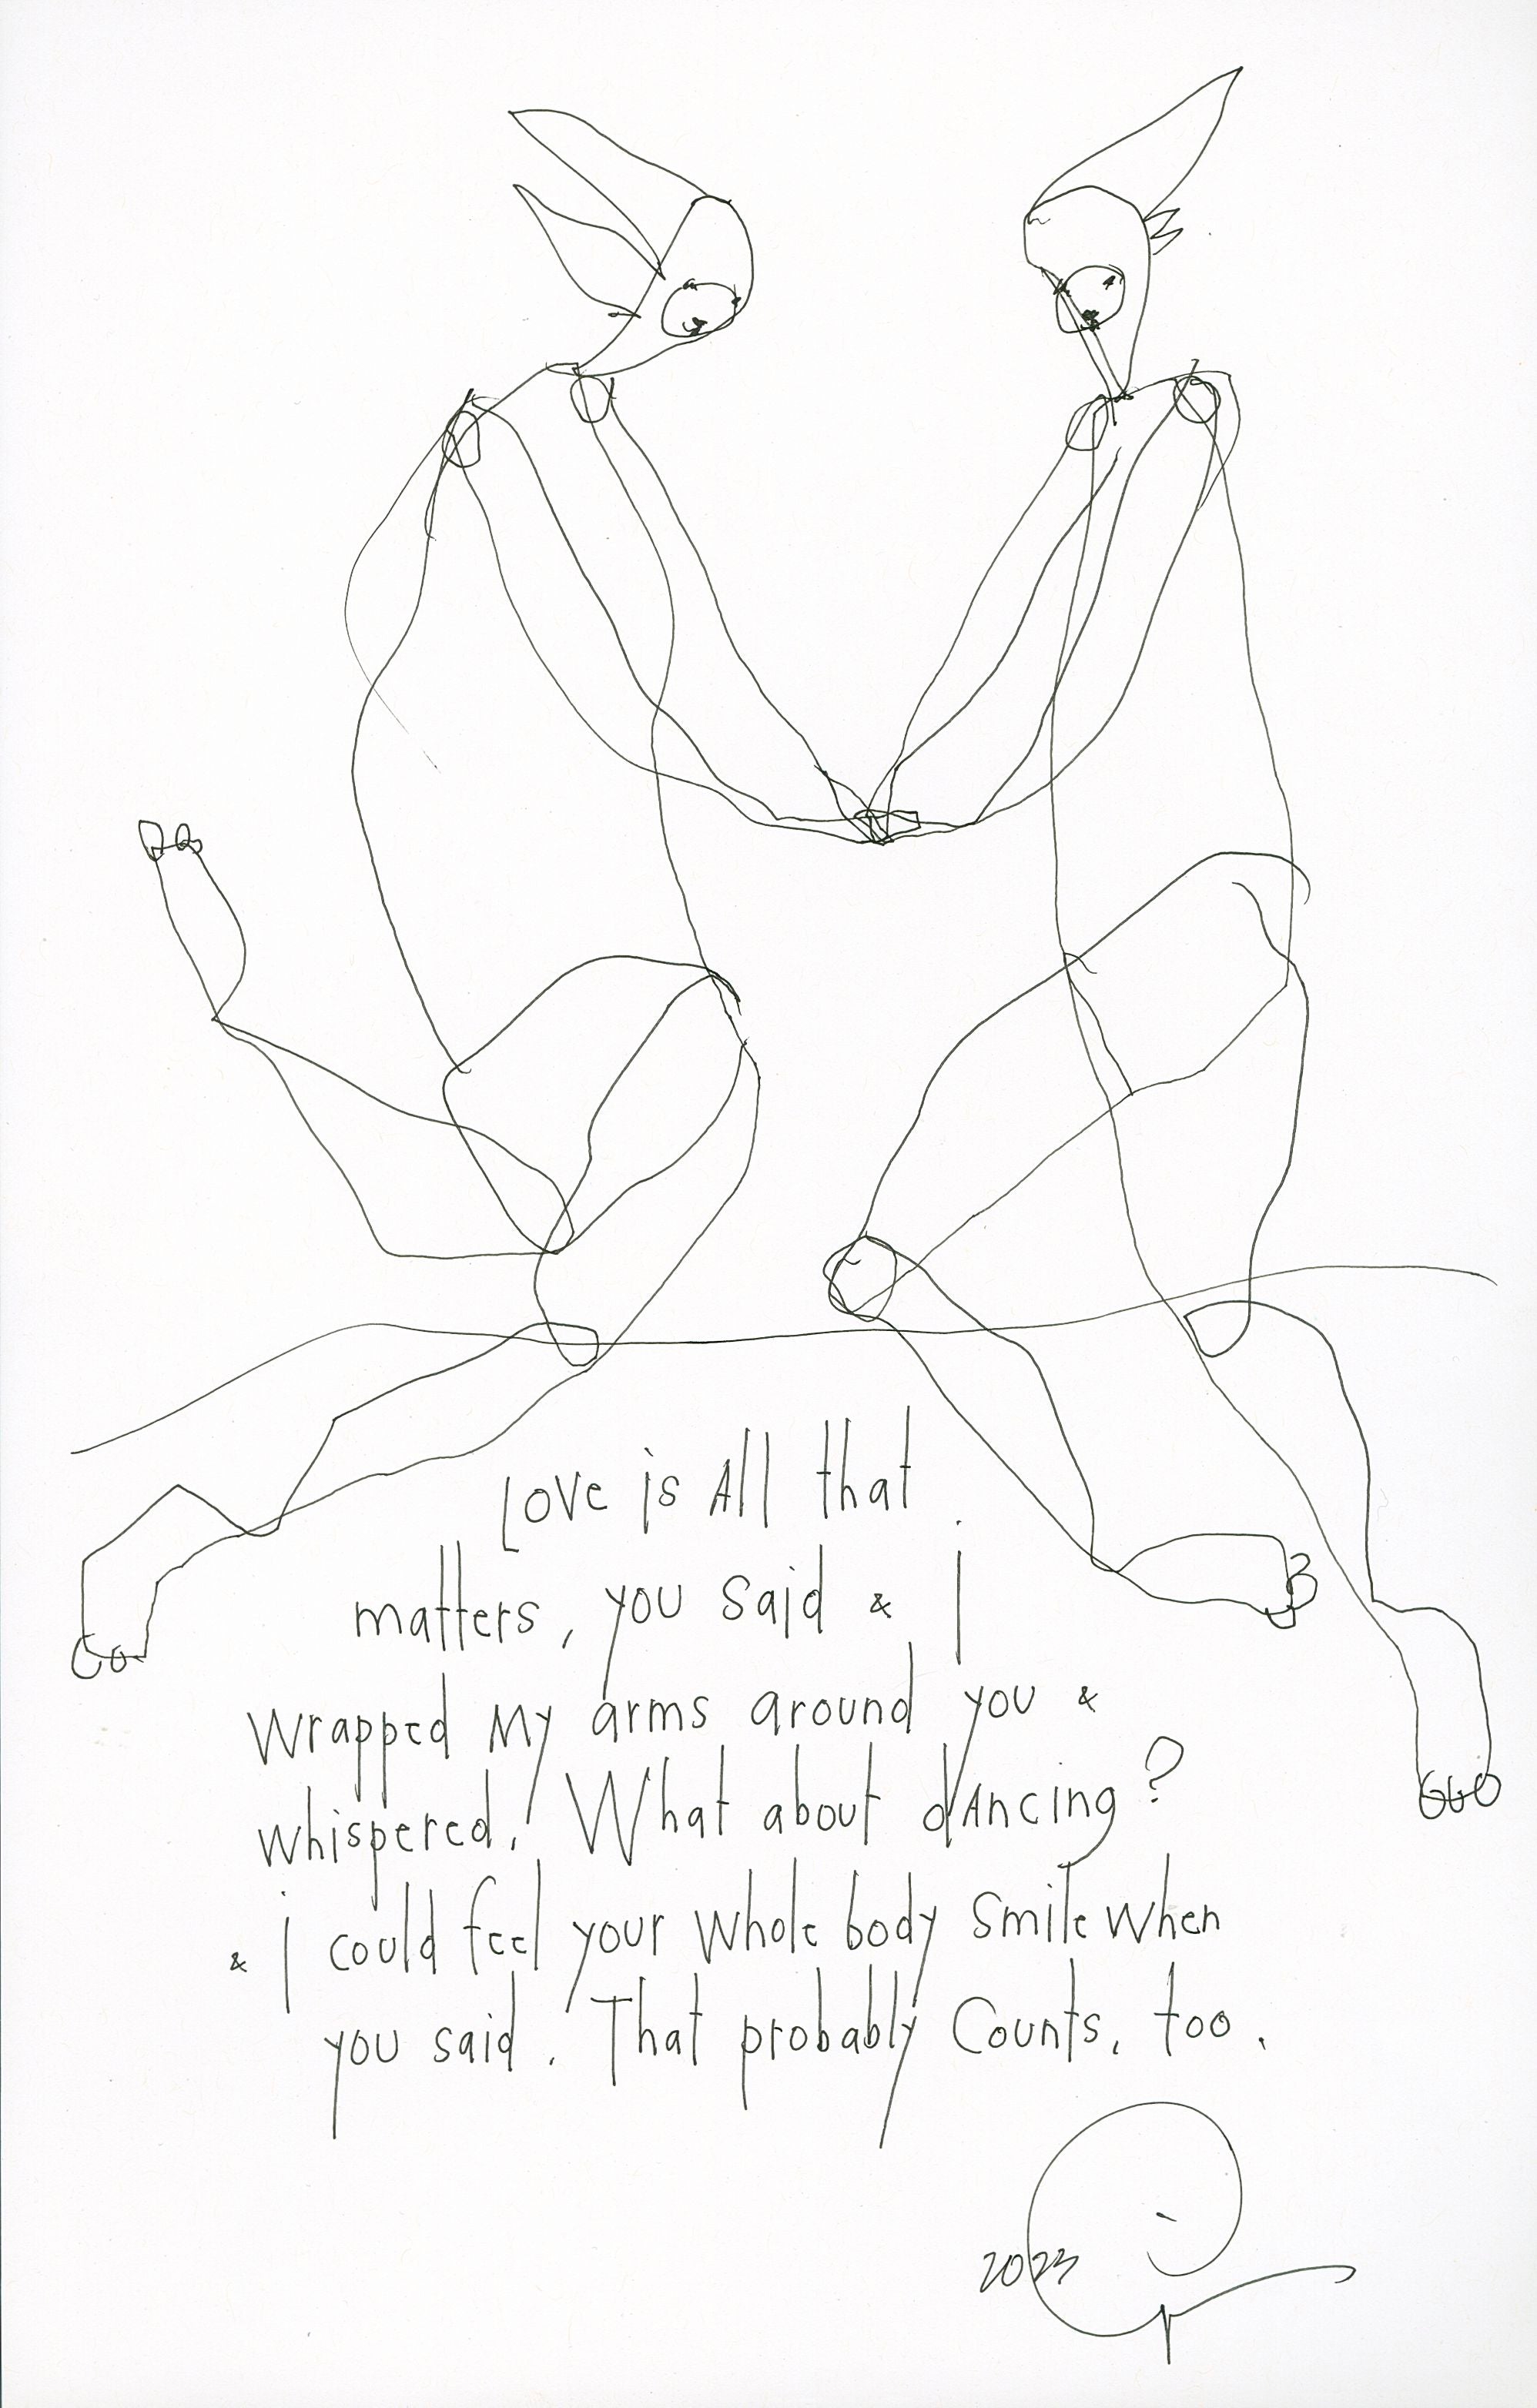 Love is All that
matters, you said & I
wrapped My arms around you &
whispered, What about dAncing?
& i could feel your whole body smile when
you said. That probably Counts, too.
2023